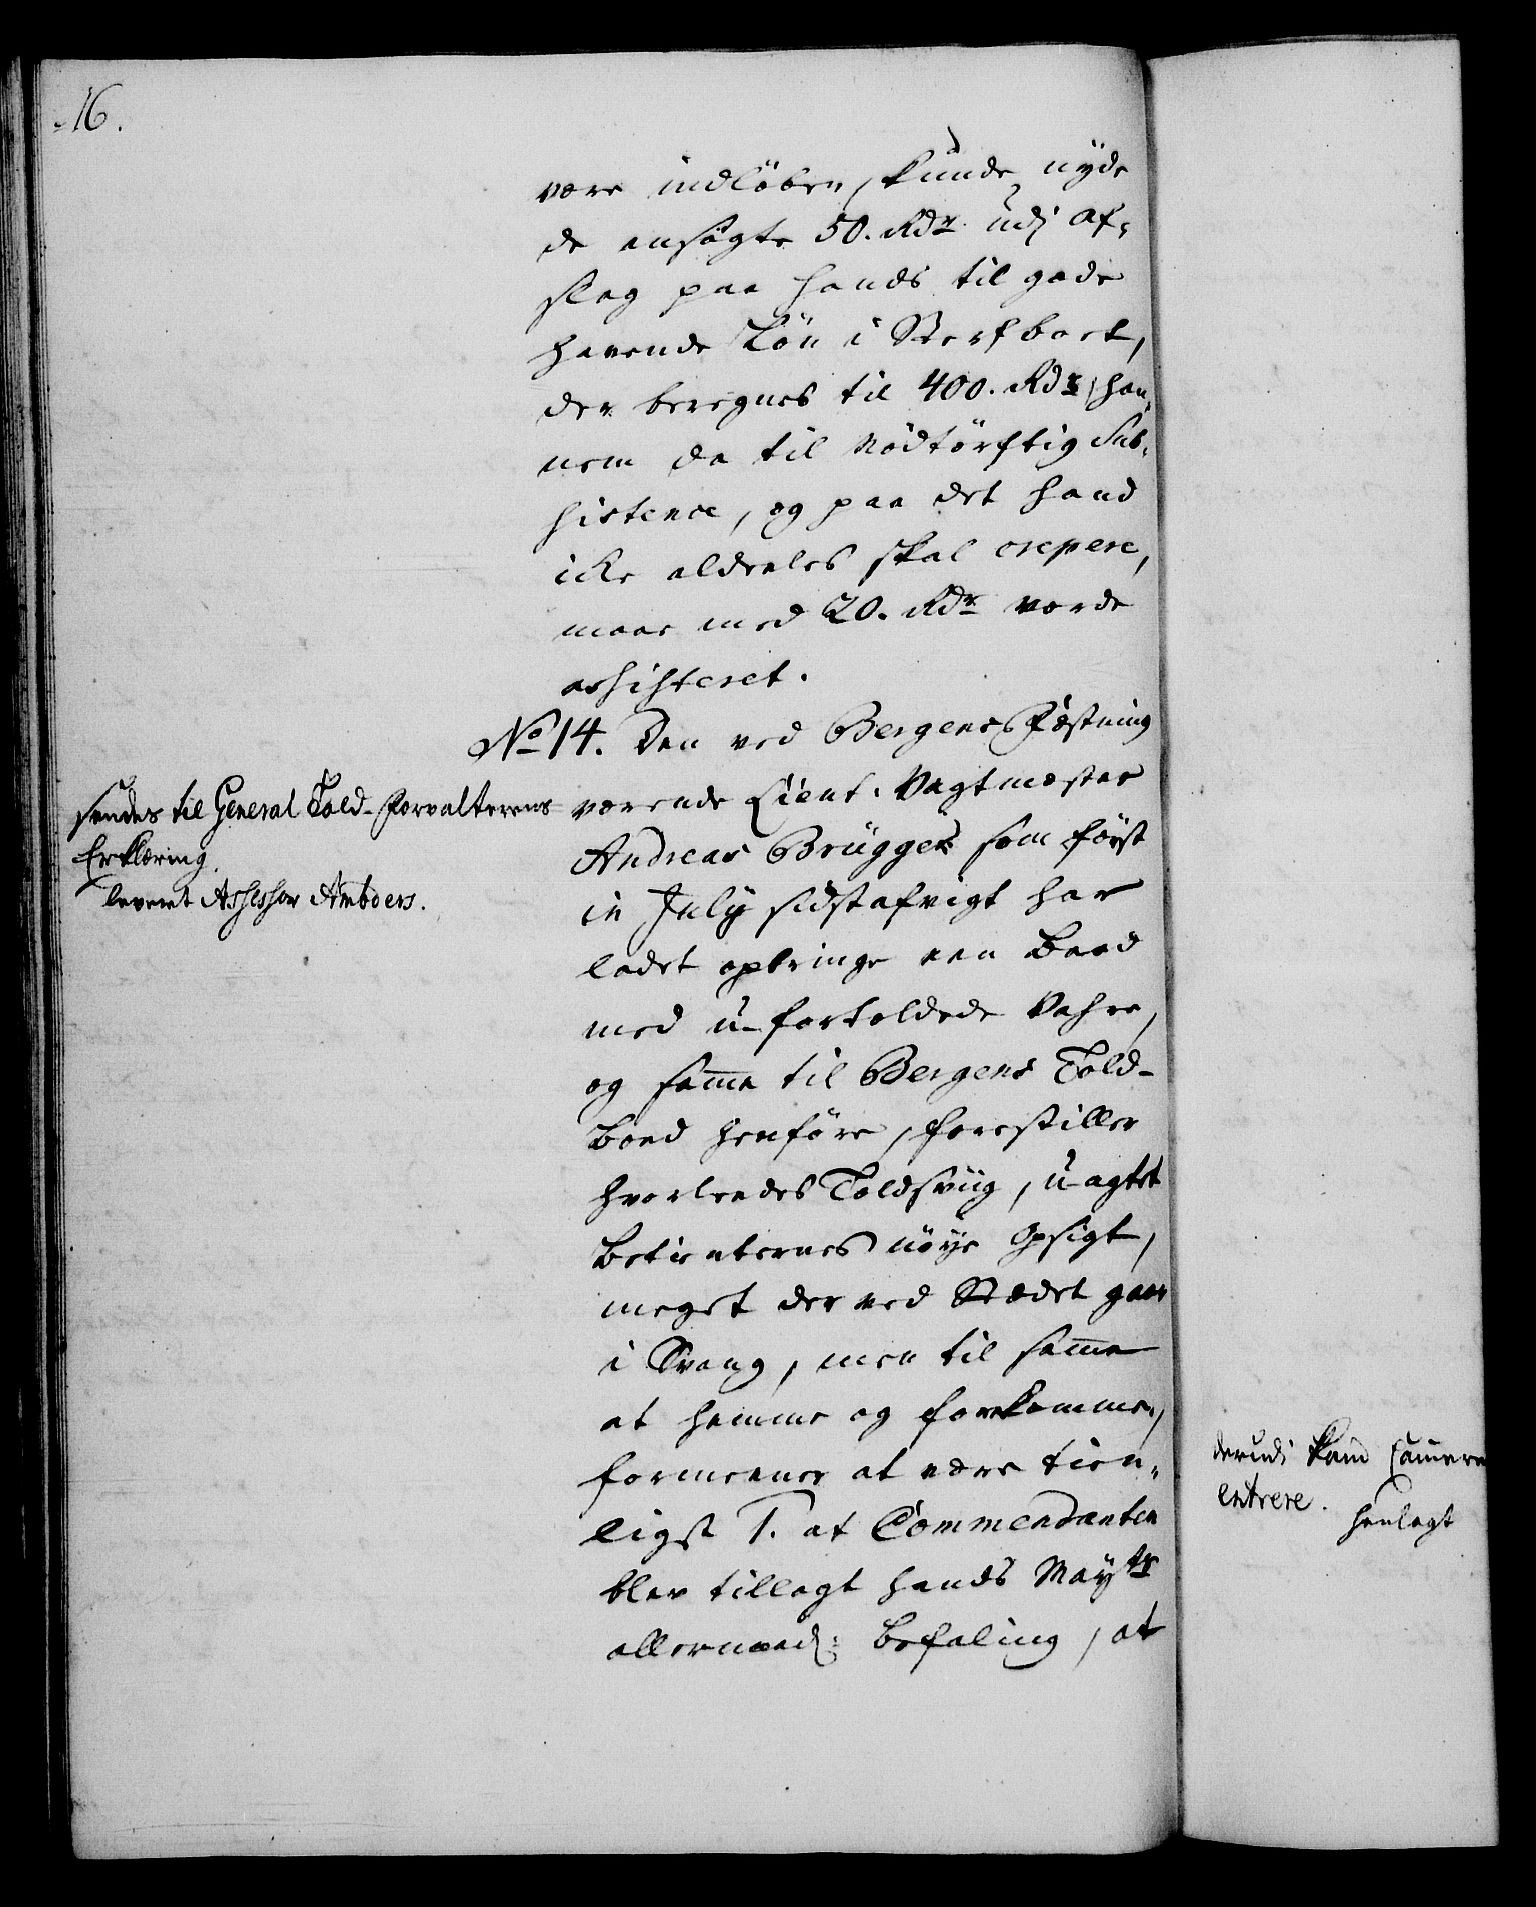 16.
være indløben, kunde nyde
de ansøgte 50. Rdr udj Af-
slag paa hands til gode
havende Løn i Sterfboet,
der beregnes til 400. Rdr, han-
nem da til Nødtørftig Sub-
sistence, og paa det hand
icke aldeeles skal crepere,
maae med 20. Rdr vorde
assisteret.
No 14. Den ved Bergens Fæstning
værende Lieut. Vagtmæster
Andreas Brügger som først
in July sidstafvigt har
ladet opbringe een Baad
med u-fortoldede Vahre,
og samme til Bergens Told-
boed henføre, forestiller
hvorleedes Toldsviig, u-agtet
betienternes nøye Opsigt,
meget der ved Stædet gaar
i Svang, men til samme
at hemme og forekomme,
formeener at være tien-
ligst 1. at Commendanten
blev tillagt hands Mayts
allernaad: befaling, at
sendes til General Told-Forvalterens
Erklæring.
leveret Assessor Ambders.
derudi kand Cammere
entrere.
henlagt